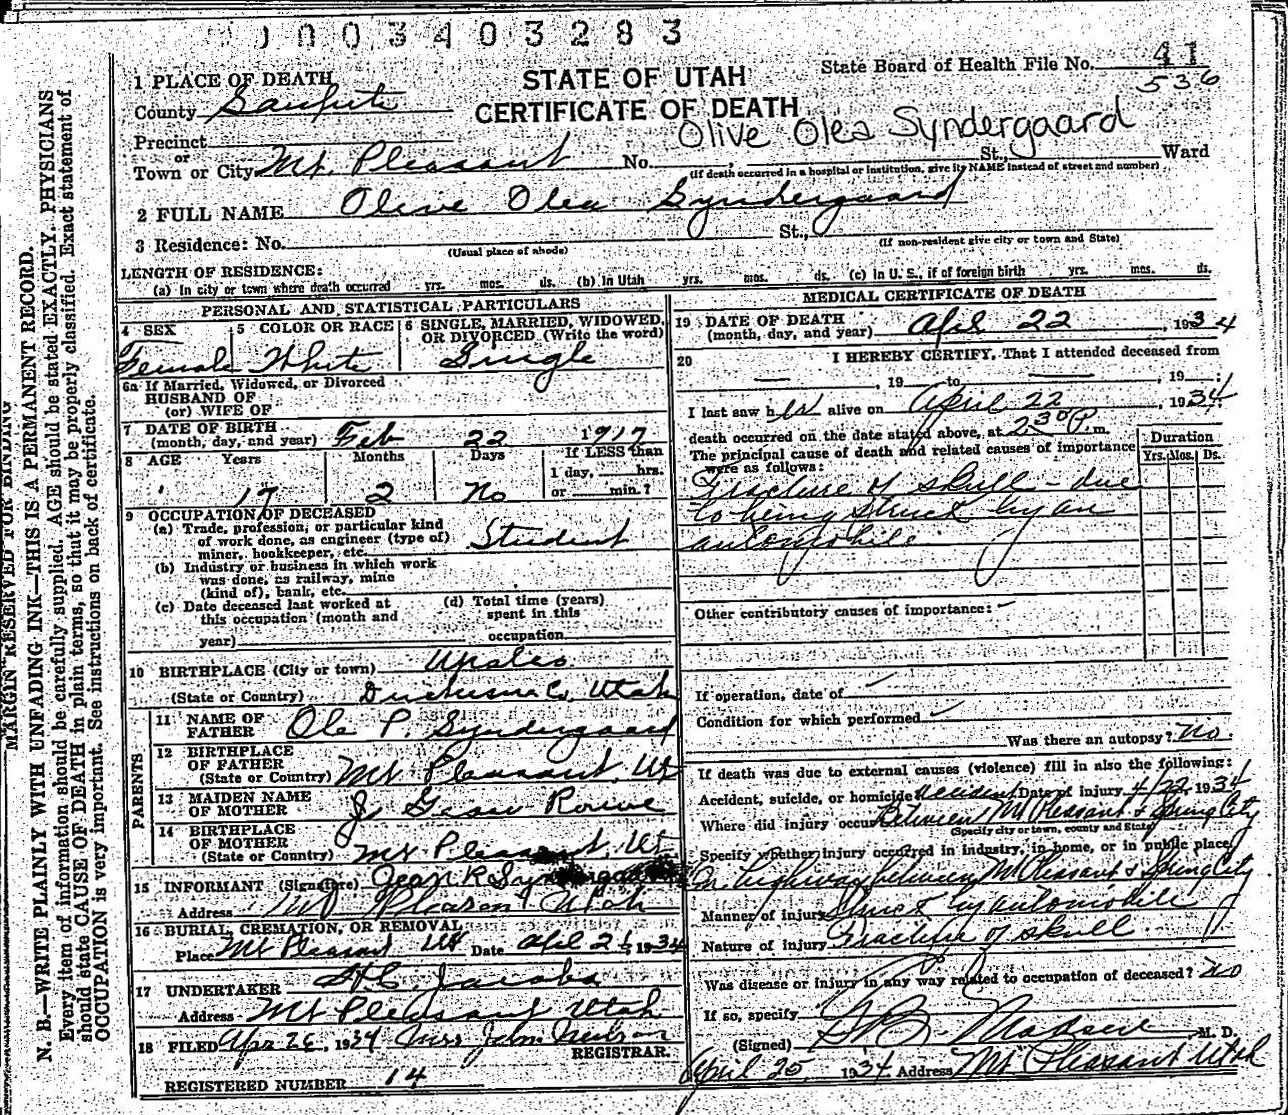 0003403283
STATE OF UTAH
CERTIFICATE OF DEATH
State Board of Health File No. 41
536
1 PLACE OF DEATH
County Sanpete
Olive Olea Syndergaard
Precinct
or
Town or City Mt. Pleasant No. , St., Ward
(If death occurred in a hospital or institution, give its NAME instead of street and number)
2 FULL NAME Olive Olea Syndergaard
3 Residence: No. St.,
(Usual place of abode) (If non-resident give city or town and State)
LENGTH OF RESIDENCE:
(a) In city or town where death occurred yrs. mos. ds. (b) In Utah yrs. mos. ds. (c) In U. S., if of foreign birth yrs. mos. ds.
PERSONAL AND STATISTICAL PARTICULARS
4 SEX 5 COLOR OR RACE 6 SINGLE, MARRIED, WIDOWED, OR DIVORCED (Write the word)
Female White Single
6a If Married, Widowed, or Divorced
HUSBAND OF
(or) WIFE OF
7 DATE OF BIRTH
(month, day, and year) Feb 22 1917
8 AGE Years Months Days If LESS than
1 day, hrs.
17 2 No or min.?
9 OCCUPATION OF DECEASED
(a) Trade, profession, or particular kind
of work done, as engineer (type of)
miner, bookkeeper, etc. Student
(b) Industry or business in which work
was done, as railway, mine
(kind of), bank, etc.
(c) Date deceased last worked at
this occupation (month and
year)
(d) Total time (years)
spent in this
occupation
10 BIRTHPLACE (City or town) Upalco
(State or Country) Duchesne Co, Utah
PARENTS
11 NAME OF
FATHER Ole P. Syndergaard
12 BIRTHPLACE
OF FATHER
(State or Country) Mt Pleasant, Ut
13 MAIDEN NAME
OF MOTHER J. Rowe
14 BIRTHPLACE
OF MOTHER
(State or Country) Mt Pleasant, Ut
15 INFORMANT (Signature) Jean R Syndergaard
Address Mt Pleasant Utah
16 BURIAL, CREMATION, OR REMOVAL
Place Mt Pleasant Ut Date April 1934
17 UNDERTAKER Jacobs
Address Mt Pleasant Utah
18 FILED Apr 1934 John
REGISTRAR.
REGISTERED NUMBER 14
MEDICAL CERTIFICATE OF DEATH
19 DATE OF DEATH
(month, day, and year) April 22, 1934
20 I HEREBY CERTIFY, That I attended deceased from
, 19 to , 19 :
I last saw her alive on April 22, 1934:
death occurred on the date stated above, at 2 30 P. m.
The principal cause of death and related causes of importance
were as follows:
Duration
Yrs. Mos. Ds.
Fracture of skull - due
to being struck by an
automobile
Other contributory causes of importance:
If operation, date of
Condition for which performed
Was there an autopsy? No
If death was due to external causes (violence) fill in also the following:
Accident, suicide, or homicide accident Date of injury 4/22, 1934
Where did injury occur Between Mt Pleasant & Spring City
(Specify city or town, county and State)
Specify whether injury occurred in industry, in home, or in public place
On highway between Mt Pleasant & Spring City
Manner of injury Struck by automobile
Nature of injury Fracture of skull
Was disease or injury in any way related to occupation of deceased? No
If so, specify
(Signed) Madsen M. D.
April 25, 1934 Address Mt Pleasant Utah
MARGIN RESERVED FOR BINDING
N. B.—WRITE PLAINLY WITH UNFADING INK—THIS IS A PERMANENT RECORD.
Every item of information should be carefully supplied. AGE should be stated EXACTLY. PHYSICIANS
should state CAUSE OF DEATH in plain terms, so that it may be properly classified. Exact statement of
OCCUPATION is very important. See instructions on back of certificate.